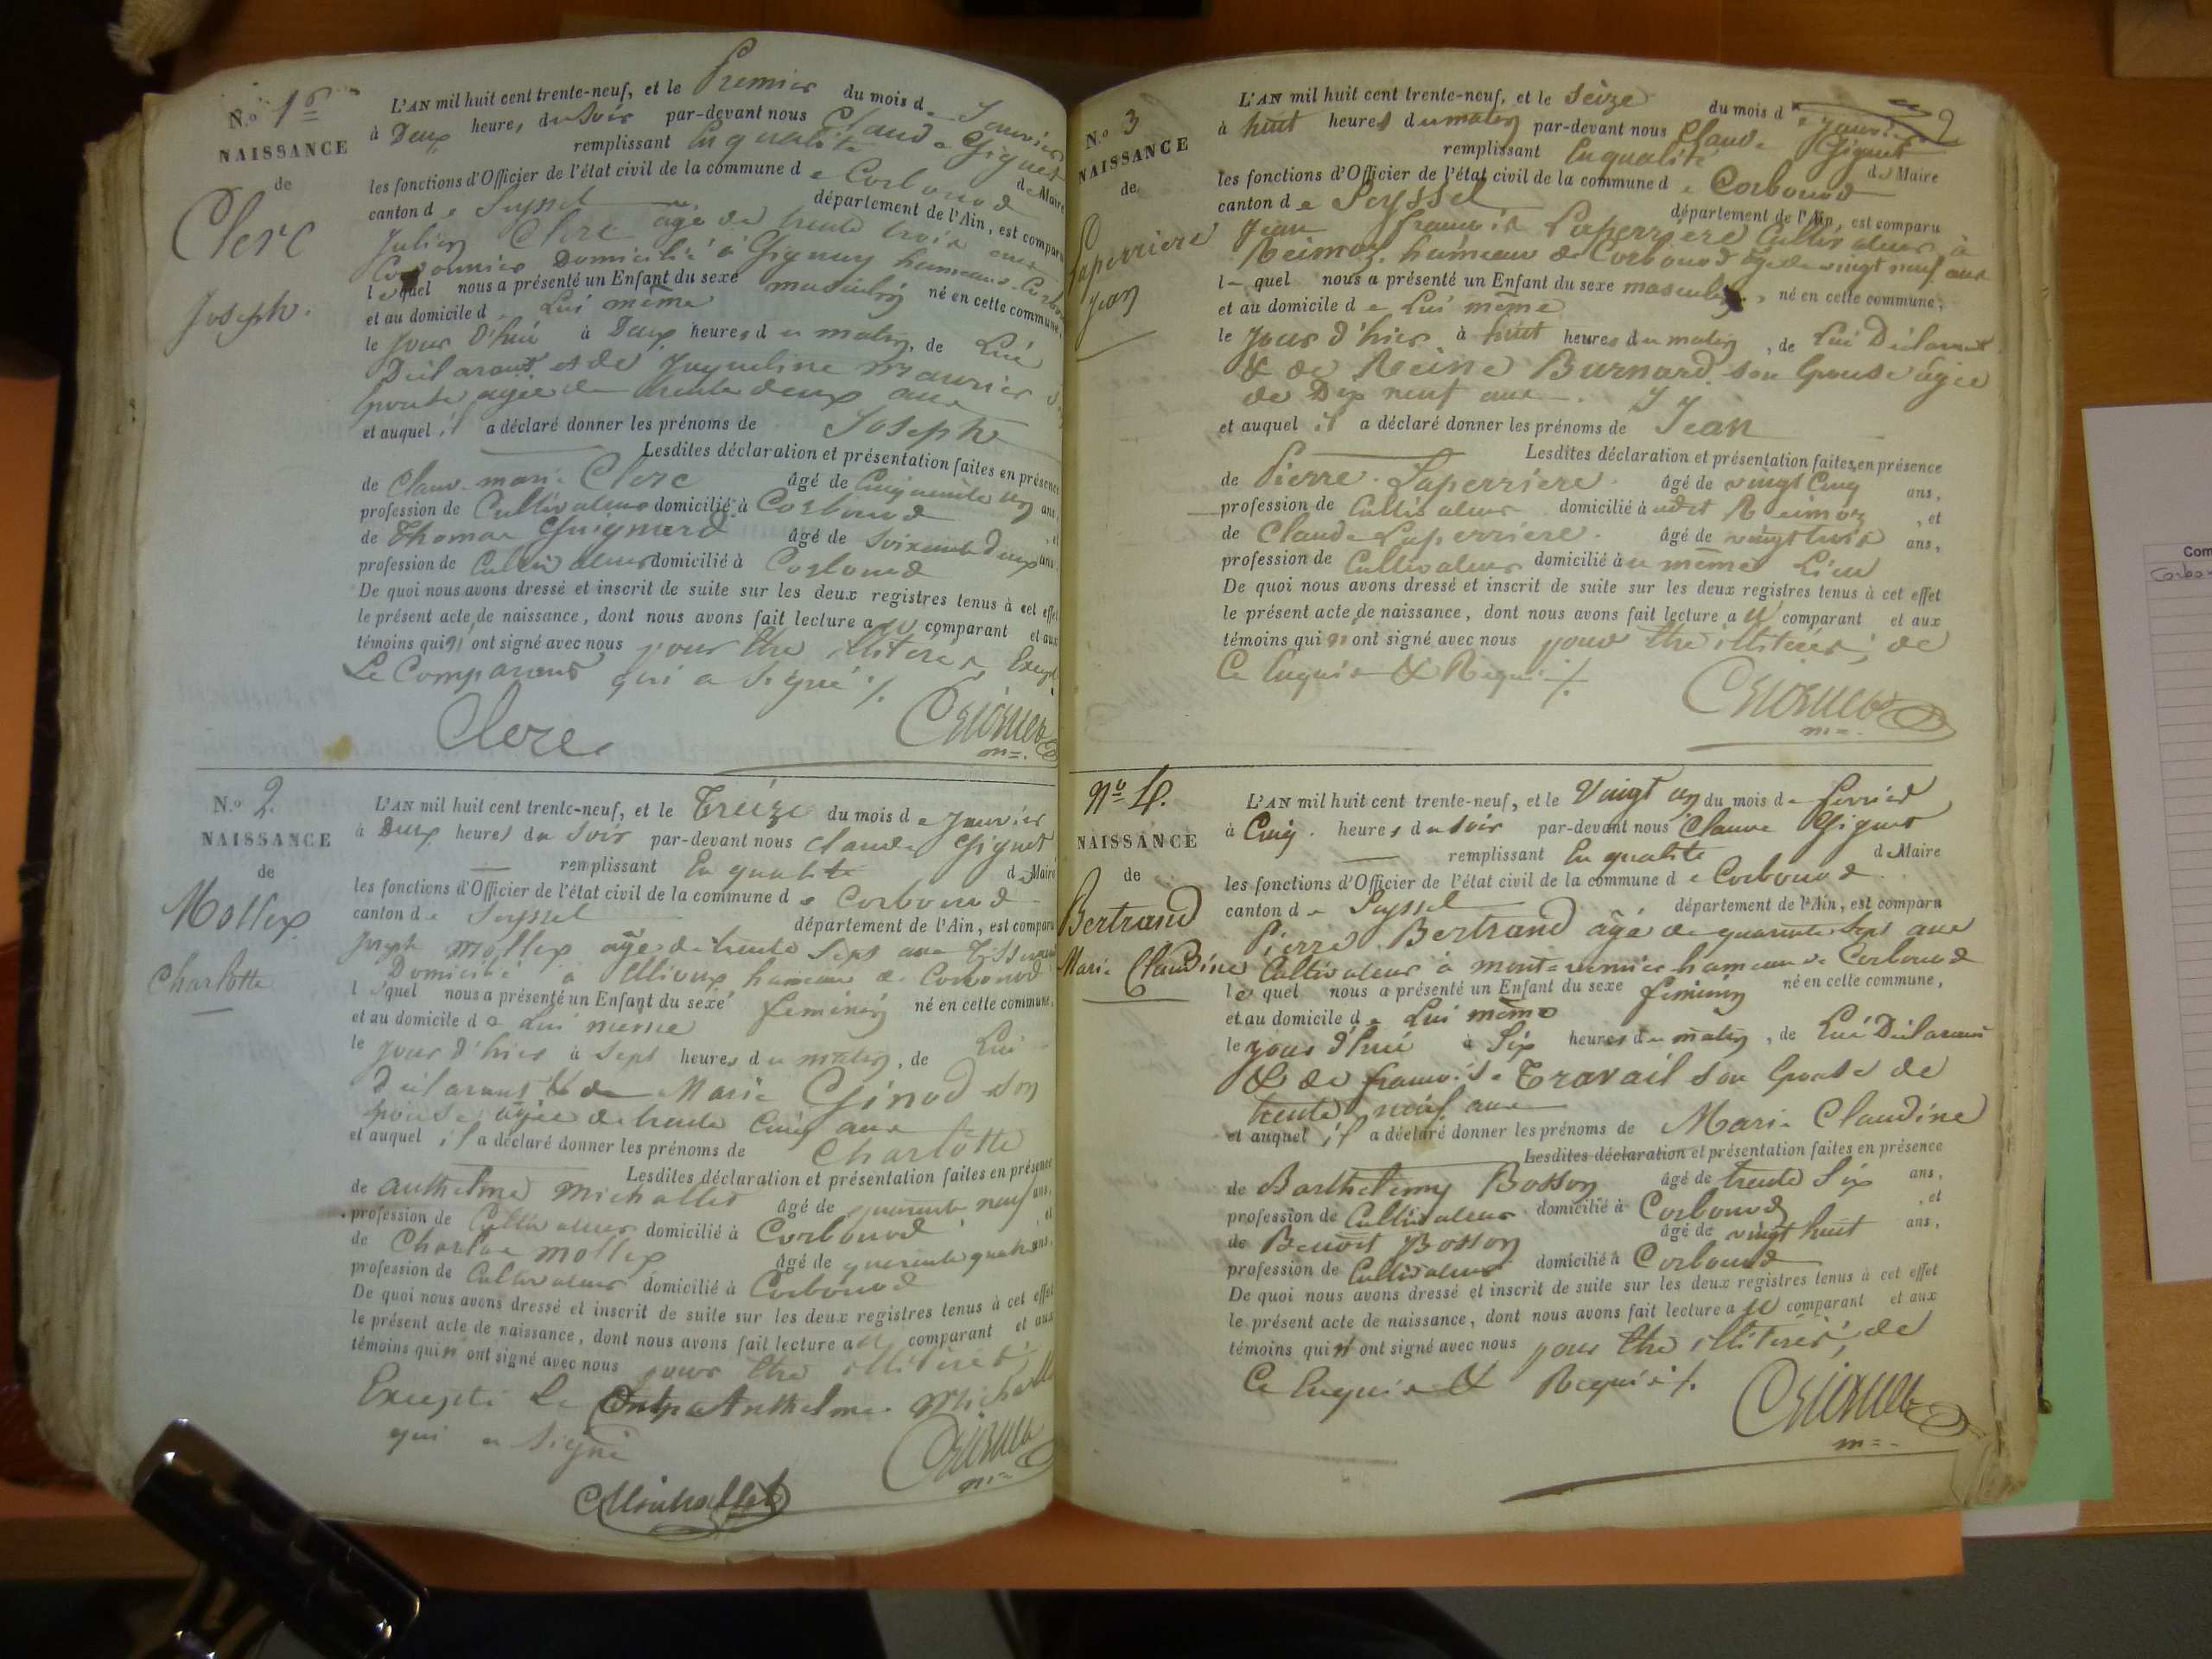 N.o 1er
NAISSANCE
de
Clerc
Joseph.
L'AN mil huit cent trente-neuf, et le Premier du mois de Janvier
à Deux heures du Soir par-devant nous Claude Gignet
remplissant En qualité de Maire
les fonctions d'Officier de l'état civil de la commune de Corbonod
canton de Seyssel département de l'Ain, est comparu
Julien Clerc agé de trente trois ans
Cordonnier Domicilié à Gignay hameau Corbonod
lequel nous a présenté un Enfant du sexe masculin né en cette commune,
et au domicile de Lui même
le Jour D'hui à Deux heures du matin, de Lui
Déclarant et de Jaqueline Maurier
épouse agée de trente deux ans
et auquel il a déclaré donner les prénoms de Joseph
Lesdites déclaration et présentation faites en présence
de Claude marie Clerc âgé de Cinquante un ans,
profession de Cultivateur domicilié à Corbonod
de Thomas Guignard âgé de Soixante deux ans
profession de Cultivateur domicilié à Corbonod
De quoi nous avons dressé et inscrit de suite sur les deux registres tenus à cet effet
le présent acte de naissance, dont nous avons fait lecture au comparant et aux
témoins qui n'ont signé avec nous pour être illitérés, Excepté
Le Comparant qui a Signé ./.
Clerc
Gignet
m=.
N.o 2
NAISSANCE
de
Mollex
Charlotte
L'AN mil huit cent trente-neuf, et le Treize du mois de Janvier
à Deux heures du Soir par-devant nous Claude Gignet
remplissant En qualité de Maire
les fonctions d'Officier de l'état civil de la commune de Corbonod
canton de Seyssel département de l'Ain, est comparu
Joseph Mollex agé de trente Sept ans Tisserand
Domicilié à Ellioux hameau de Corbonod
lequel nous a présenté un Enfant du sexe féminin né en cette commune,
et au domicile de Lui même
le Jour d'hier à Sept heures du matin, de Lui
Déclarant & de Marie Ginod son
épouse agée de trente Cinq ans
et auquel il a déclaré donner les prénoms de Charlotte
Lesdites déclaration et présentation faites en présence
de anthelme Michallet âgé de quarante neuf ans,
profession de Cultivateur domicilié à Corbonod et
de Charles Mollex âgé de quarante quatre ans,
profession de Cultivateur domicilié à Corbonod
De quoi nous avons dressé et inscrit de suite sur les deux registres tenus à cet effet
le présent acte de naissance, dont nous avons fait lecture au comparant et aux
témoins qui n'ont signé avec nous pour être illitérés,
Excepté Le Anthelme Michallet
qui a Signé
Michallet
Gignet
m=
2
N.o 3
NAISSANCE
de
Laperriere
Jean
L'AN mil huit cent trente-neuf, et le Seize du mois de Janvier
à huit heures du matin par-devant nous Claude Gignet
remplissant En qualité de Maire
les fonctions d'Officier de l'état civil de la commune de Corbonod
canton de Seyssel département de l'Ain, est comparu
Jean françois Laperriere Cultivateur à
Reimoz hameau de Corbonod agé de vingt neuf ans
lequel nous a présenté un Enfant du sexe masculin, né en cette commune,
et au domicile de Lui même
le Jour d'hier à huit heures du matin, de Lui Déclarant
& de Reine Burnard son épouse agée
de Dix neuf ans.
et auquel il a déclaré donner les prénoms de Jean
Lesdites déclaration et présentation faites en présence
de Pierre Laperriere âgé de vingt Cinq ans,
profession de Cultivateur domicilié à udit Reimoz, et
de Claude Laperriere. âgé de vingt trois ans,
profession de Cultivateur domicilié au même Lieu
De quoi nous avons dressé et inscrit de suite sur les deux registres tenus à cet effet
le présent acte de naissance, dont nous avons fait lecture au comparant et aux
témoins qui n'ont signé avec nous pour être illitérés, de
Ce Enquis & Requis ./.
Gignet
m=.
No 4.
NAISSANCE
de
Bertrand
Marie Claudine
L'AN mil huit cent trente-neuf, et le Vingt un du mois de fevrier
à Cinq heures du Soir par-devant nous Claude Gignet
remplissant En qualité de Maire
les fonctions d'Officier de l'état civil de la commune de Corbonod
canton de Seyssel département de l'Ain, est comparu
Pierre Bertrand agé de quarante Sept ans
Cultivateur à mont-vernier hameau de Corbonod
lequel nous a présenté un Enfant du sexe féminin né en cette commune,
et au domicile de Lui même
le Jour d'hui à Six heures du matin, de Lui Déclarant
& de françoise Travail son épouse de
trente neuf ans
et auquel il a déclaré donner les prénoms de Marie Claudine
Lesdites déclaration et présentation faites en présence
de Barthelemy Bosson âgé de trente Six ans,
profession de Cultivateur domicilié à Corbonod, et
de Benoit Bosson âgé de vingt huit ans,
profession de Cultivateur domicilié à Corbonod
De quoi nous avons dressé et inscrit de suite sur les deux registres tenus à cet effet
le présent acte de naissance, dont nous avons fait lecture au comparant et aux
témoins qui n'ont signé avec nous pour être illitérés, de
Ce Enquis & Requis ./.
Gignet
m=.
Com
Corbo